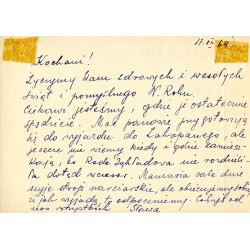 17.XII 64
Kochani!
Życzymy Wam zdrowych i wesołych
Świąt i pomyślnego N. Roku.
Ciekawi jesteśmy, gdzie je ostatecznie
spędzicie. Moi panowie przygotowują
się do wyjazdu do Zakopanego, ale
jeszcze nie wiemy kiedy i gdzie zamiesz-
kają, bo Rada Zakładowa nie rozdzieli-
ła dotąd wczasów. Mamusia całe dnie
szyje stroje narciarskie, ale obiecujemy sobie
że jak wyjadą to odpoczniemy. Całuję od
nas wszystkich Stasia